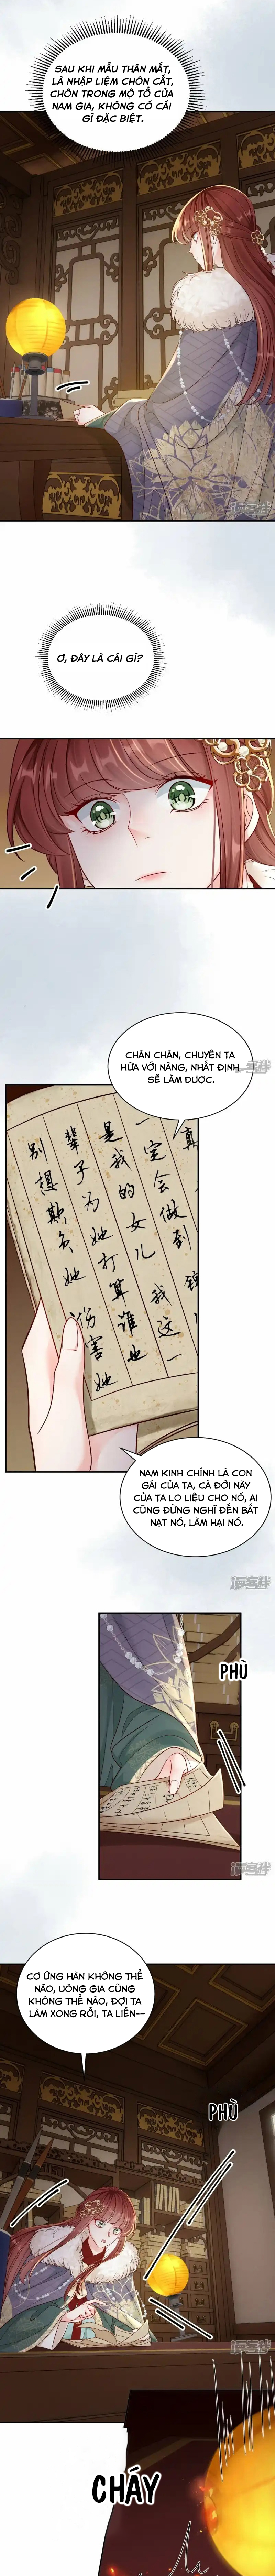 SAU KHI MẪU THÂN MẤT,
LÀ NHẬP LIỆM CHÔN CẤT,
CHÔN TRONG MỘ TỔ CỦA
NAM GIA, KHÔNG CÓ CÁI
GÌ ĐẶC BIỆT.
Ơ, ĐÂY LÀ CÁI GÌ?
CHÂN CHÂN, CHUYỆN TA
HỨA VỚI NÀNG, NHẤT ĐỊNH
SẼ LÀM ĐƯỢC.
真
一定会做到
锦
是我的女儿我这一
辈子为她打算谁也
别想欺负她伤害她
NAM KINH CHÍNH LÀ CON
GÁI CỦA TA, CẢ ĐỜI NÀY
CỦA TA LO LIỆU CHO NÓ, AI
CŨNG ĐỪNG NGHĨ ĐẾN BẮT
NẠT NÓ, LÀM HẠI NÓ.
PHÙ
CƠ ỨNG HÀN KHÔNG THỂ
NÀO, UÔNG GIA CŨNG
KHÔNG THỂ NÀO, ĐỢI TA
LÀM XONG RỒI, TA LIỀN--
PHÙ
CHÁY